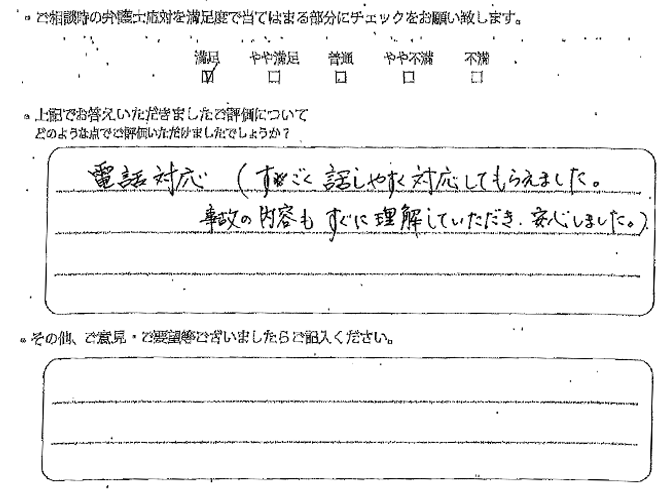 ・ご相談時の弁護士応対を満足度で当てはまる部分にチェックをお願い致します。
満足 やや満足 普通 やや不満 不満
☑ □ □ □ □
・上記でお答えいただきましたご評価について
どのような点でご評価いただけましたでしょうか?
電話対応 (すごく話しやすく対応してもらえました。
事故の内容もすぐに理解していただき、安心しました。)
・その他、ご意見・ご要望等ございましたらご記入ください。